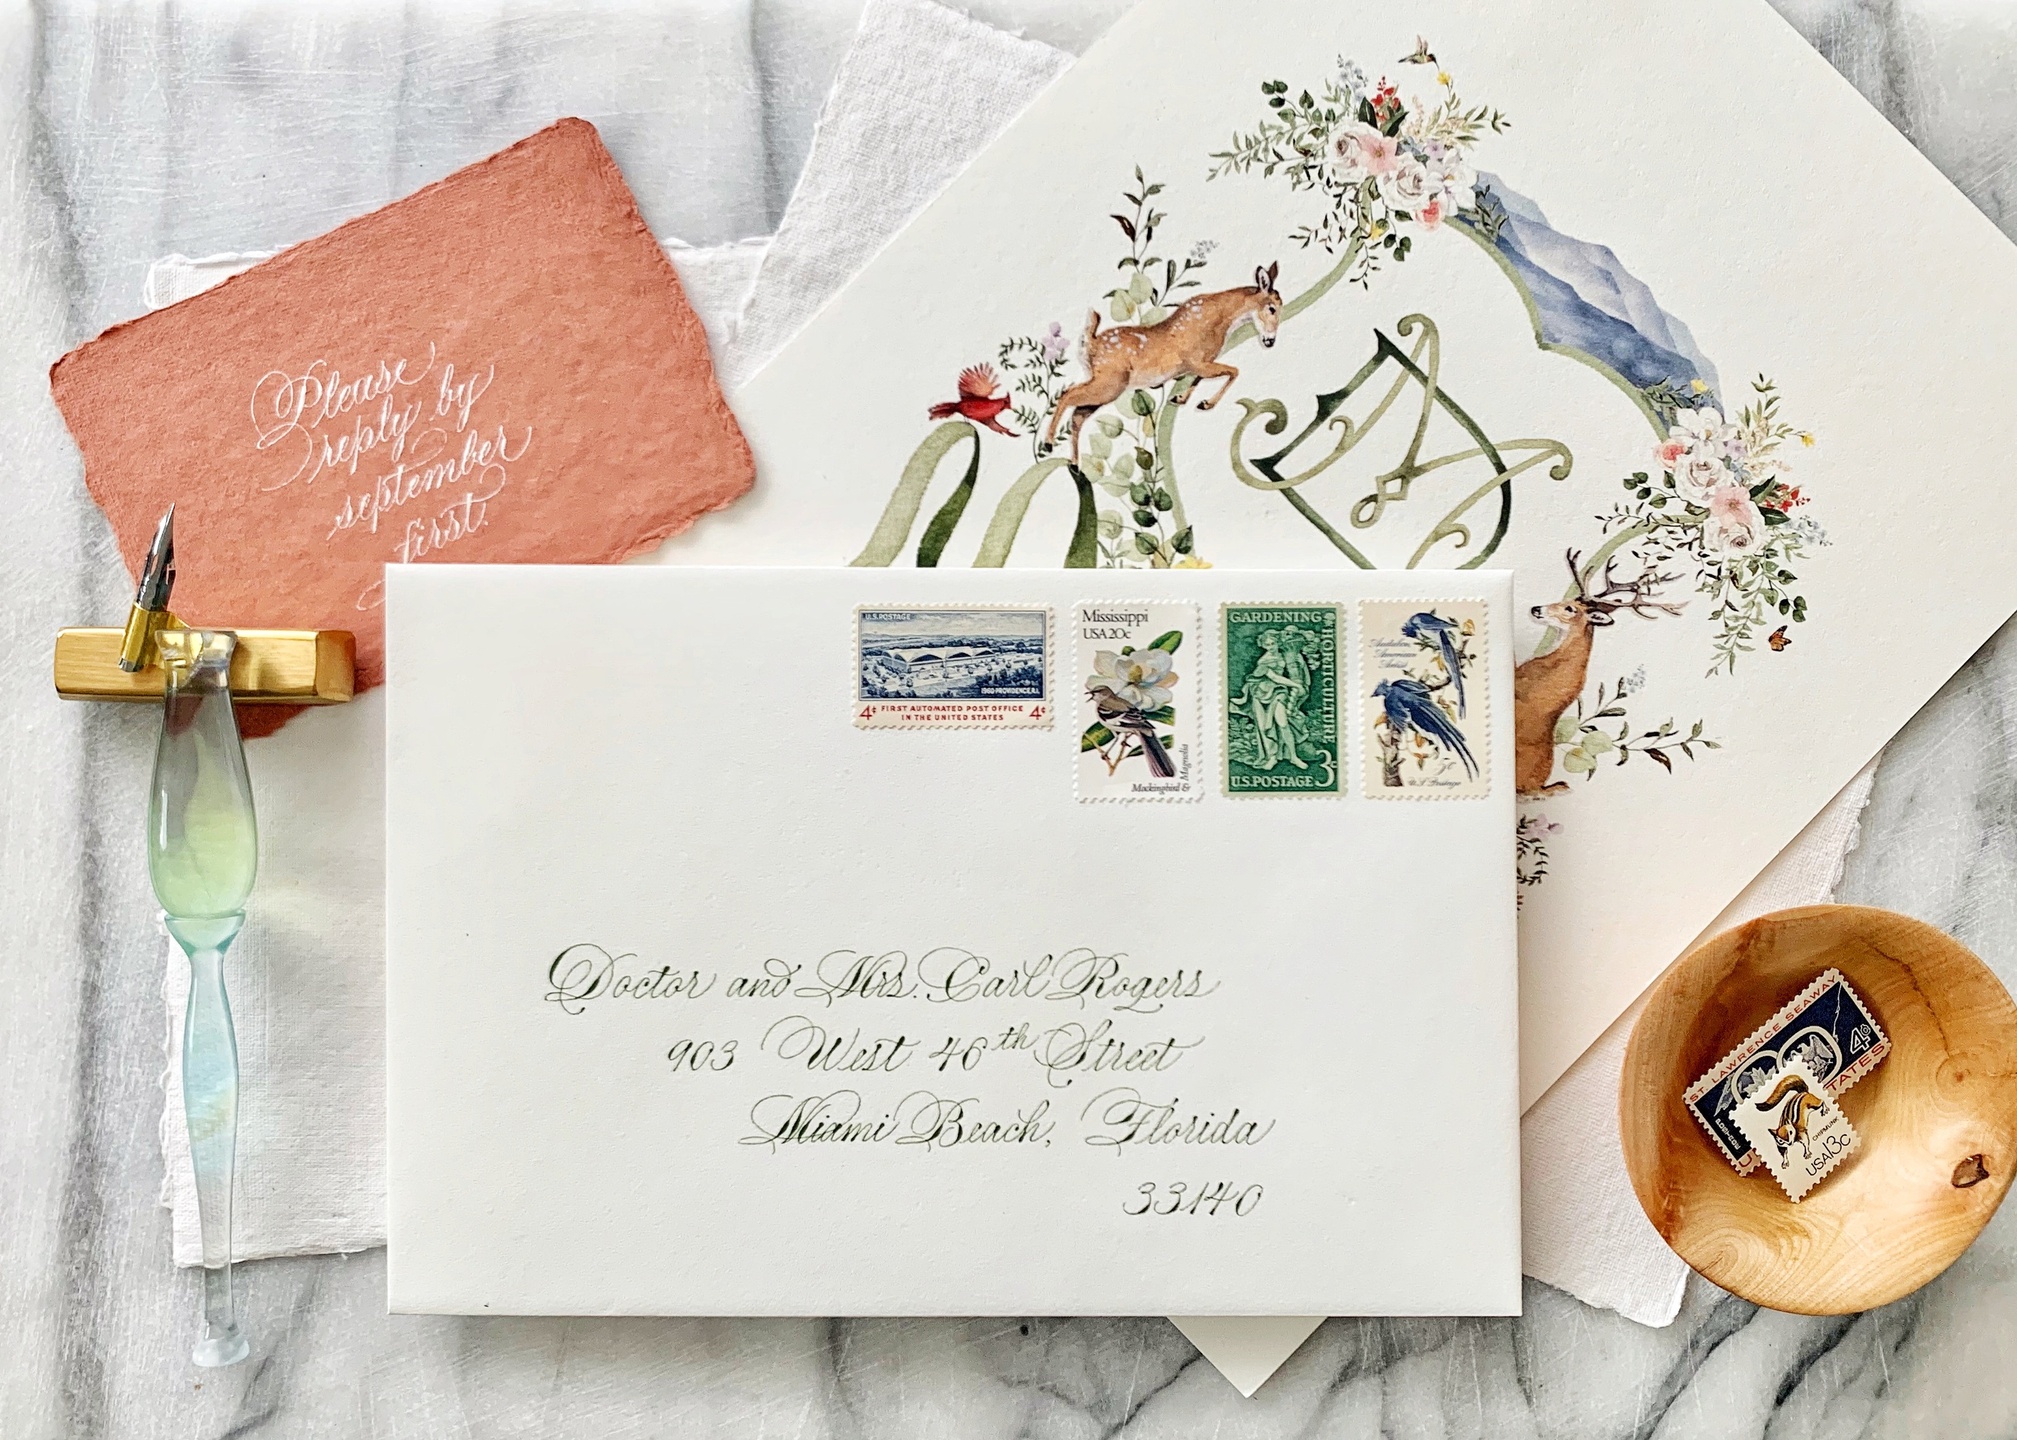 Please
reply by
september
first.
U.S. POSTAGE
1960·PROVIDENCE,R.I.
4¢ FIRST AUTOMATED POST OFFICE 4¢
IN THE UNITED STATES
Mississippi
USA 20c
Mockingbird &
Magnolia
GARDENING
HORTICULTURE
U.S. POSTAGE 5¢
Audubon
American
Artist
5¢
U.S. Postage
Doctor and Mrs. Carl Rogers
903 West 46th Street
Miami Beach, Florida
33140
ST. LAWRENCE SEAWAY
4¢
TATES
CHIPMUNK
USA13c